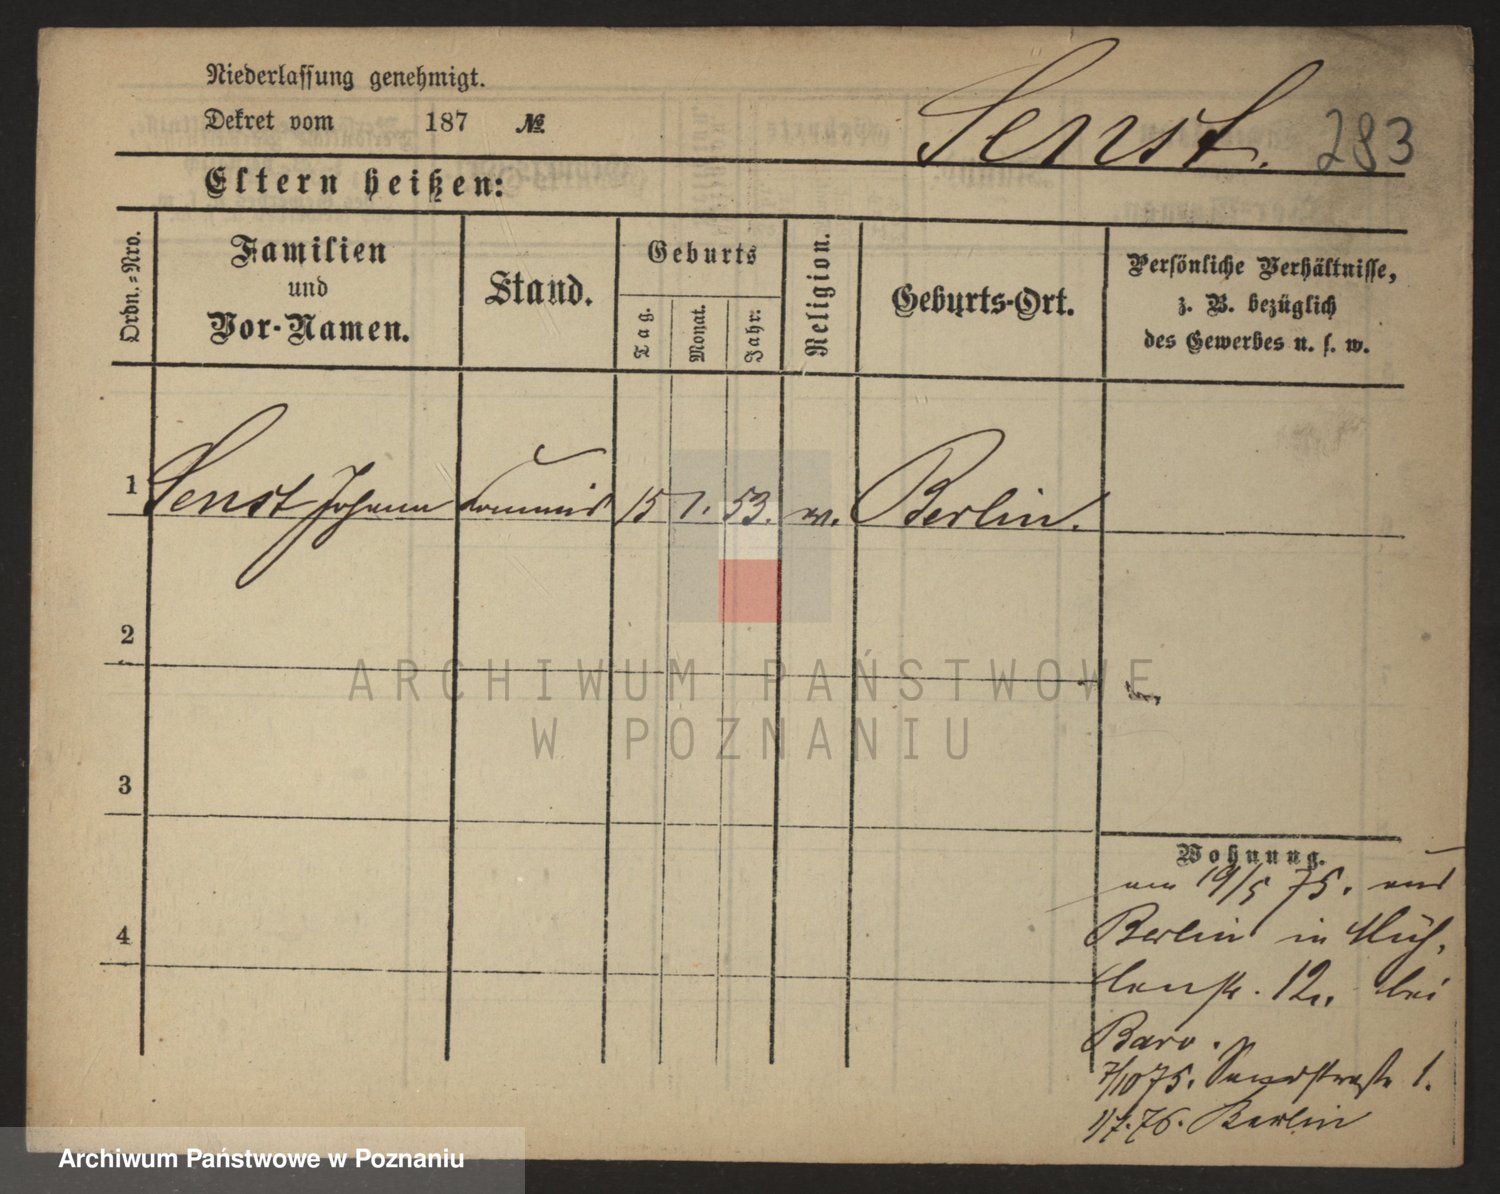 Niederlassung genehmigt.
Dekret vom 187 №
Senst. 283
Eltern heißen:
Ordn.-Nro.
Familien
und
Vor-Namen.
Stand.
Geburts
Tag.
Monat.
Jahr.
Religion.
Geburts-Ort.
Persönliche Verhältnisse,
z. B. bezüglich
des Gewerbes u. s. w.
1 Senst Johann Commis 15 1. 53. ev. Berlin.
2
3
4
Wohnung.
am 19/5 75. aus
Berlin in Müh-
lenstr. 12. bei
Baro.
7/10 75. Sandstraße 1.
1/7.76. Berlin
ARCHIWUM PAŃSTWOWE
W POZNANIU
Archiwum Państwowe w Poznaniu